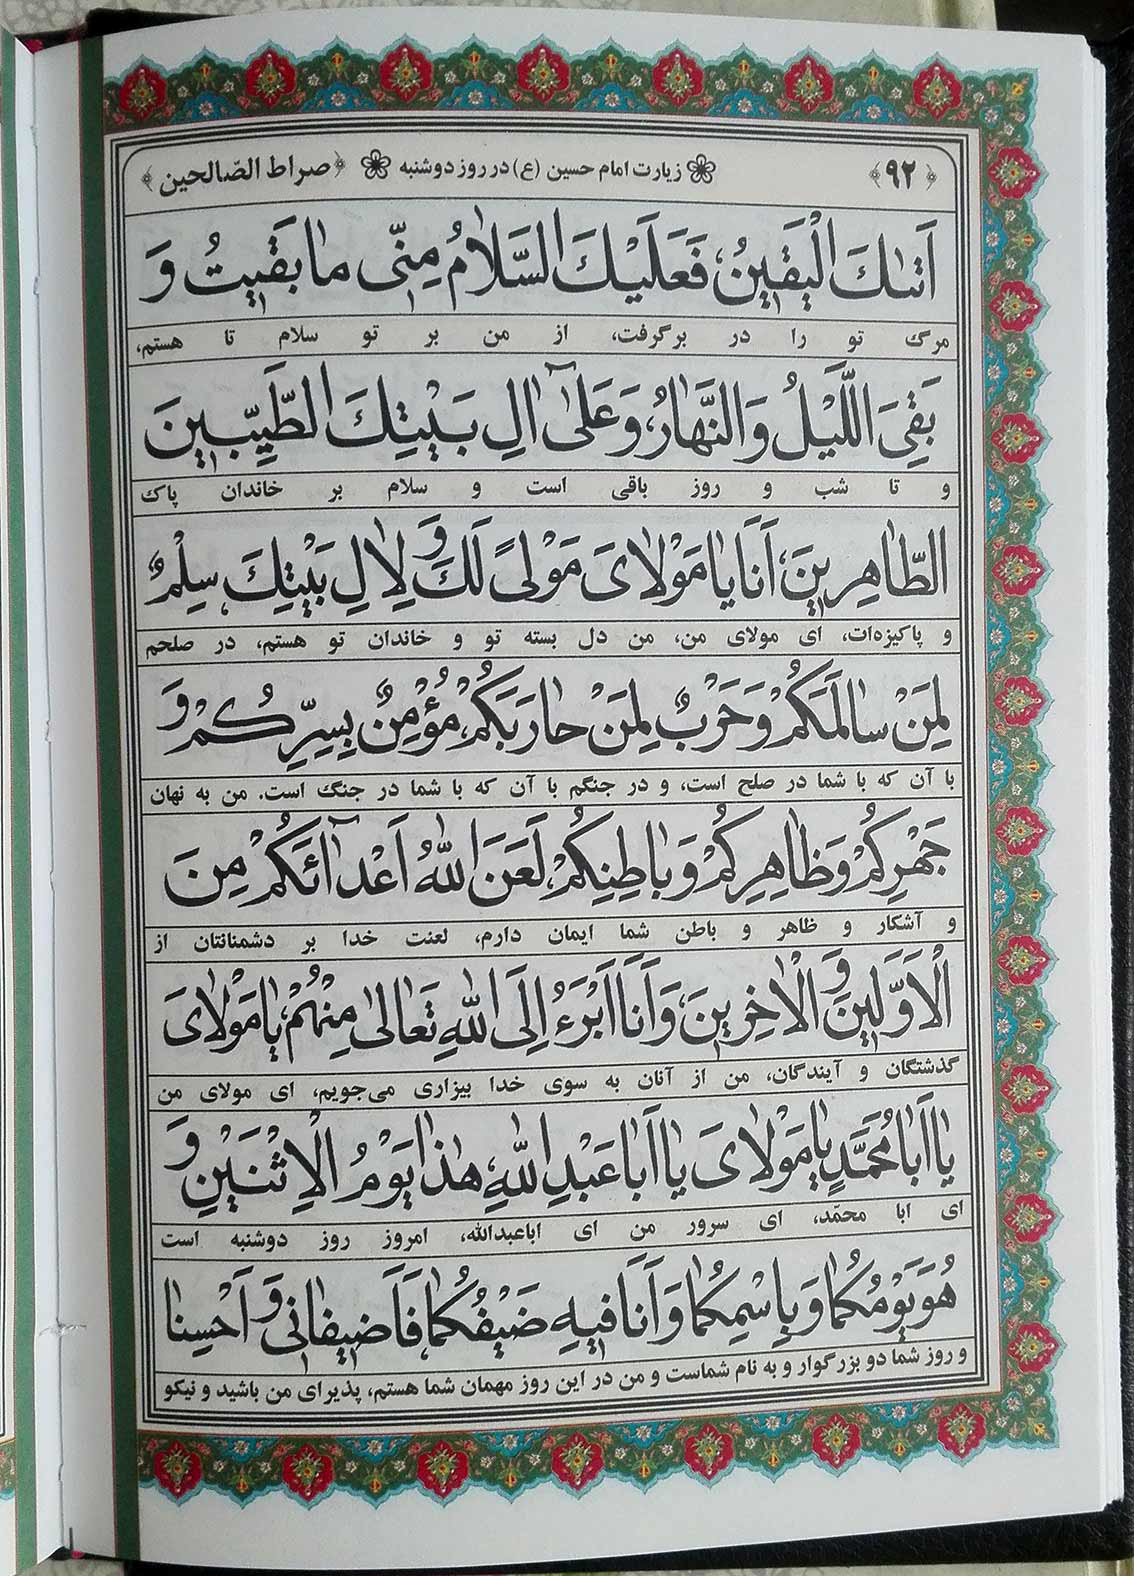 ﴿۹۲﴾ زیارت امام حسین (ع) در روز دوشنبه ﴿صراط الصّالحین﴾
اَتٰىكَ الْيَقينُ، فَعَلَيْكَ السَّلامُ مِنّى ما بَقيتُ وَ
مرگ تو را در برگرفت، از من بر تو سلام تا هستم،
بَقِىَ اللَّيْلُ وَ النَّهارُ، وَ عَلىٰٓ اٰلِ بَيْتِكَ الطَّيِّبينَ
و تا شب و روز باقی است و سلام بر خاندان پاک
الطّاهِرينَ، اَنَا يا مَوْلاىَ مَوْلىً لَكَ وَ لِاٰلِ بَيْتِكَ، سِلْمٌ
و پاکیزه‌ات، ای مولای من، من دل بسته تو و خاندان تو هستم، در صلحم
لِمَنْ سالَمَكُمْ وَ حَرْبٌ لِمَنْ حارَبَكُمْ، مُؤْمِنٌ بِسِرِّكُمْ وَ
با آن که با شما در صلح است، و در جنگم با آن که با شما در جنگ است. من به نهان
جَهْرِكُمْ وَ ظاهِرِكُمْ وَ باطِنِكُمْ، لَعَنَ اللّٰهُ اَعْدآئَكُمْ مِنَ
و آشکار و ظاهر و باطن شما ایمان دارم، لعنت خدا بر دشمنانتان از
الْاَوَّلينَ وَ الْاٰخِرينَ، وَ اَنَا اَبْرَءُ اِلَى اللّٰهِ تَعالىٰ مِنْهُمْ، يا مَوْلاىَ
گذشتگان و آیندگان، من از آنان به سوی خدا بیزاری می‌جویم، ای مولای من
يا اَبا مُحَمَّدٍ يا مَوْلاىَ يا اَبا عَبْدِ اللّٰهِ، هٰذا يَوْمُ الْاِثْنَيْنِ وَ
ای ابا محمّد، ای سرور من ای اباعبدالله، امروز روز دوشنبه است
هُوَ يَوْمُكُما وَ بِاسْمِكُما وَ اَنَا فيهِ ضَيْفُكُما، فَاَضيفانى وَ اَحْسِنا
و روز شما دو بزرگوار و به نام شماست و من در این روز مهمان شما هستم، پذیرای من باشید و نیکو